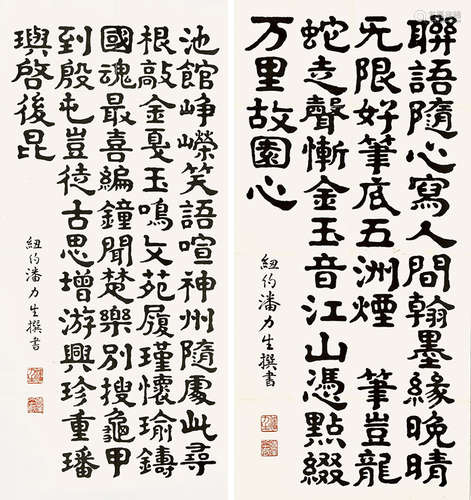 聯語隨心寫人間翰墨緣晚晴
无限好筆底五洲煙 筆豈龍
蛇走聲慚金玉音江山憑點綴
万里故園心
紐約潘力生撰書
池館崢嶸笑語喧神州隨處此尋
根敲金戛玉鳴文苑履瑾懷瑜鑄
國魂最喜編鐘聞楚樂別搜龜甲
到殷屯豈徒古思增游興珍重璠
璵啓後昆
紐約潘力生撰書